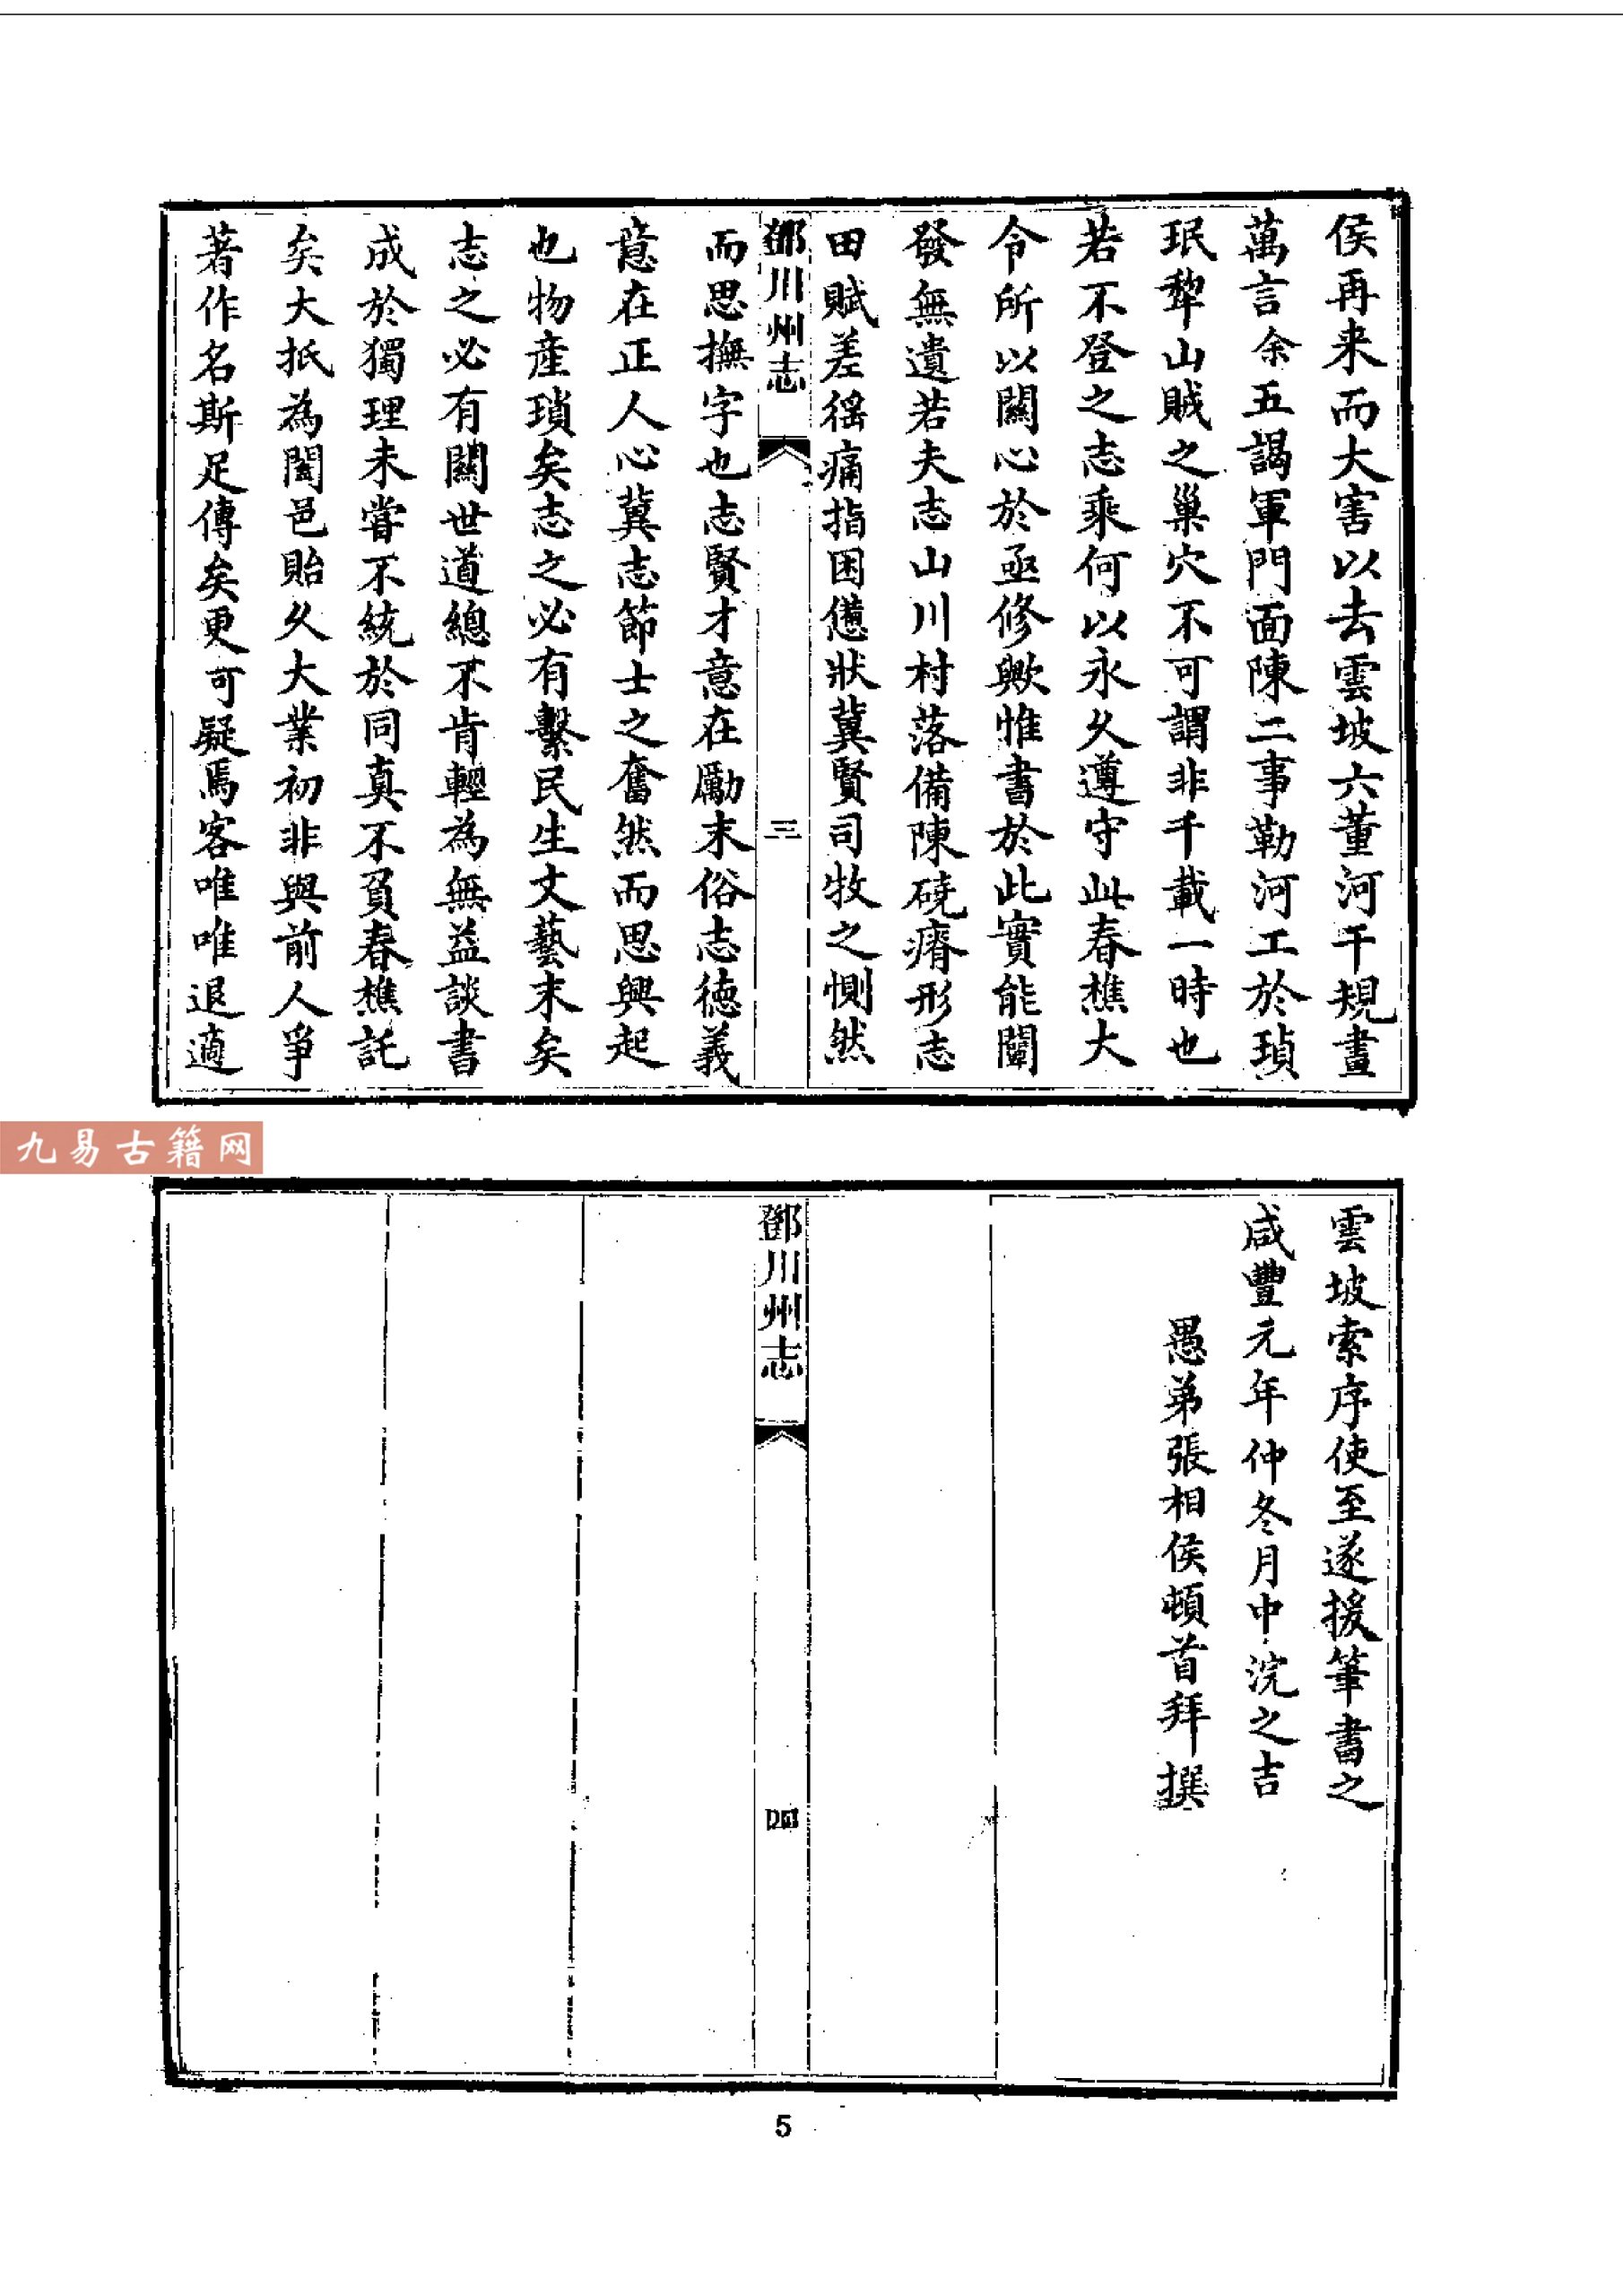 侯再来而大害以去雲坡六董河干規畫
萬言余五謁軍門面陳二事勒河工於瑱
珉犂山賊之巢穴不可謂非千載一時也
若不登之志乘何以永久遵守此春樵大
令所以關心於亟修歟惟書於此實能闡
發無遺若夫志山川村落備陳磽瘠形志
田賦差徭痛指困憊狀冀賢司牧之惻然
鄧川州志
三
而思撫字也志賢才意在勵末俗志德義
意在正人心冀志節士之奮然而思興起
也物產瑣矣志之必有繫民生文藝末矣
志之必有關世道總不肯輕為無益談書
成於獨理未嘗不統於同真不負春樵託
矣大抵為闔邑貽久大業初非與前人爭
著作名斯足傳矣更可疑焉客唯唯退適
九易古籍网
雲坡索序使至遂援筆書之
咸豐元年仲冬月中浣之吉
愚弟張相侯頓首拜撰
鄧川州志
四
5